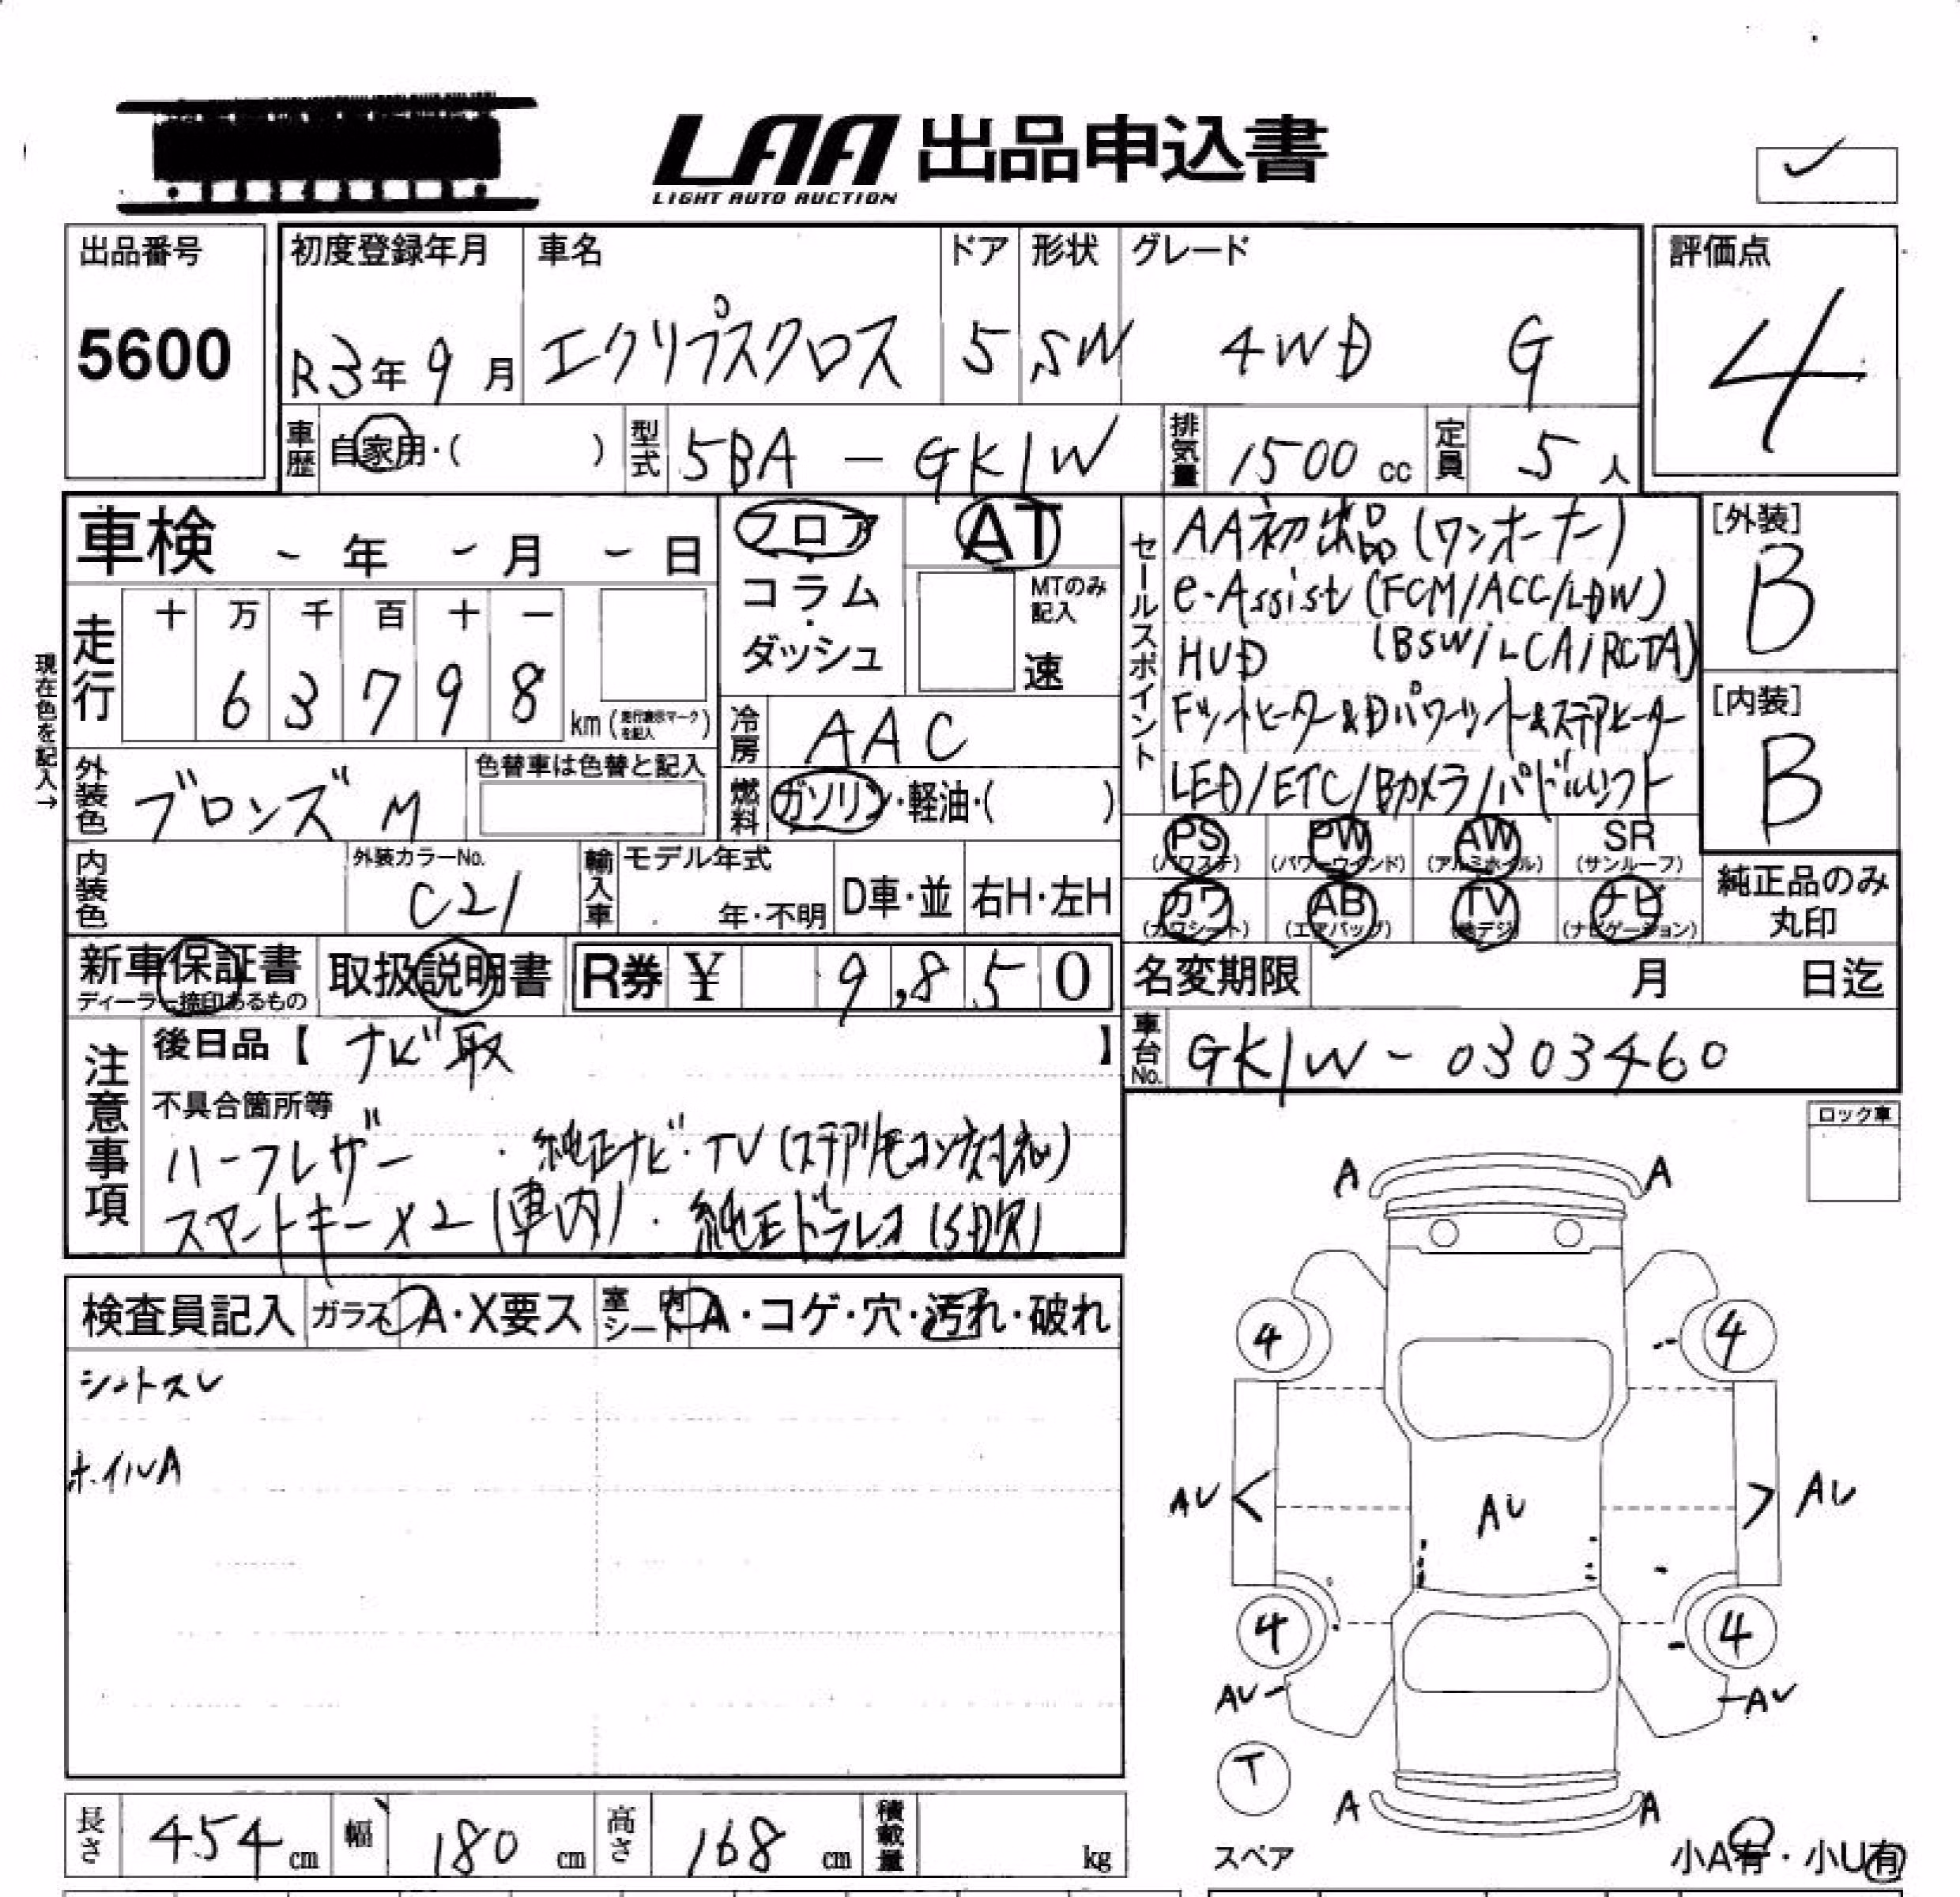 LAA 出品申込書
LIGHT AUTO AUCTION
✓
出品番号 初度登録年月 車名 ドア 形状 グレード 評価点
5600 R3年9月 エクリプスクロス 5 SW 4WD G 4
車歴 自家用・( ) 型式 5BA - GK1W 排気量 1500cc 定員 5人
車検 - 年 - 月 - 日
フロア・コラム・ダッシュ
AT
MTのみ記入
速
走行
十 万 千 百 十 一
6 3 7 9 8 km(走行表示マークを記入)
現在色を記入→
冷房 AAC
外装色 ブロンズM 色替車は色替と記入
燃料 ガソリン・軽油・( )
内装色 外装カラーNo. C21 輸入車 モデル年式 年・不明 D車・並 右H・左H
セールスポイント
AA初出品(ワンオーナー)
e-Assist(FCM/ACC/LDW)
HUD (BSW/LCA/RCTA)
FシートヒーターDパワーシート&ステアヒーター
LED/ETC/Bカメラ/パドルシフト
[外装]
B
[内装]
B
PS(パワステ) PW(パワーウインド) AW(アルミホイル) SR(サンルーフ)
カワ(カワシート) AB(エアバッグ) TV(地デジ) ナビ(ナビゲーション)
純正品のみ丸印
新車保証書 ディーラー捺印あるもの 取扱説明書 R券 ¥ 9,850
名変期限 月 日迄
車台No. GK1W-0303460
注意事項
後日品【 ナビ取 】
不具合箇所等
ハーフレザー ・純正ナビ・TV(ステアリモコン対応)
スマートキーX2(車内)・純正ドラレコ(SD欠)
ロック車
検査員記入 ガラス A・X要ス 室内シート A・コゲ・穴・汚れ・破れ
シートスレ
ホイルA
A A
4 4
AU AU AU
4 4
AU AU
T
A A
スペア
小A有・小U有
長さ 454cm 幅 180cm 高さ 168cm 積載量 kg